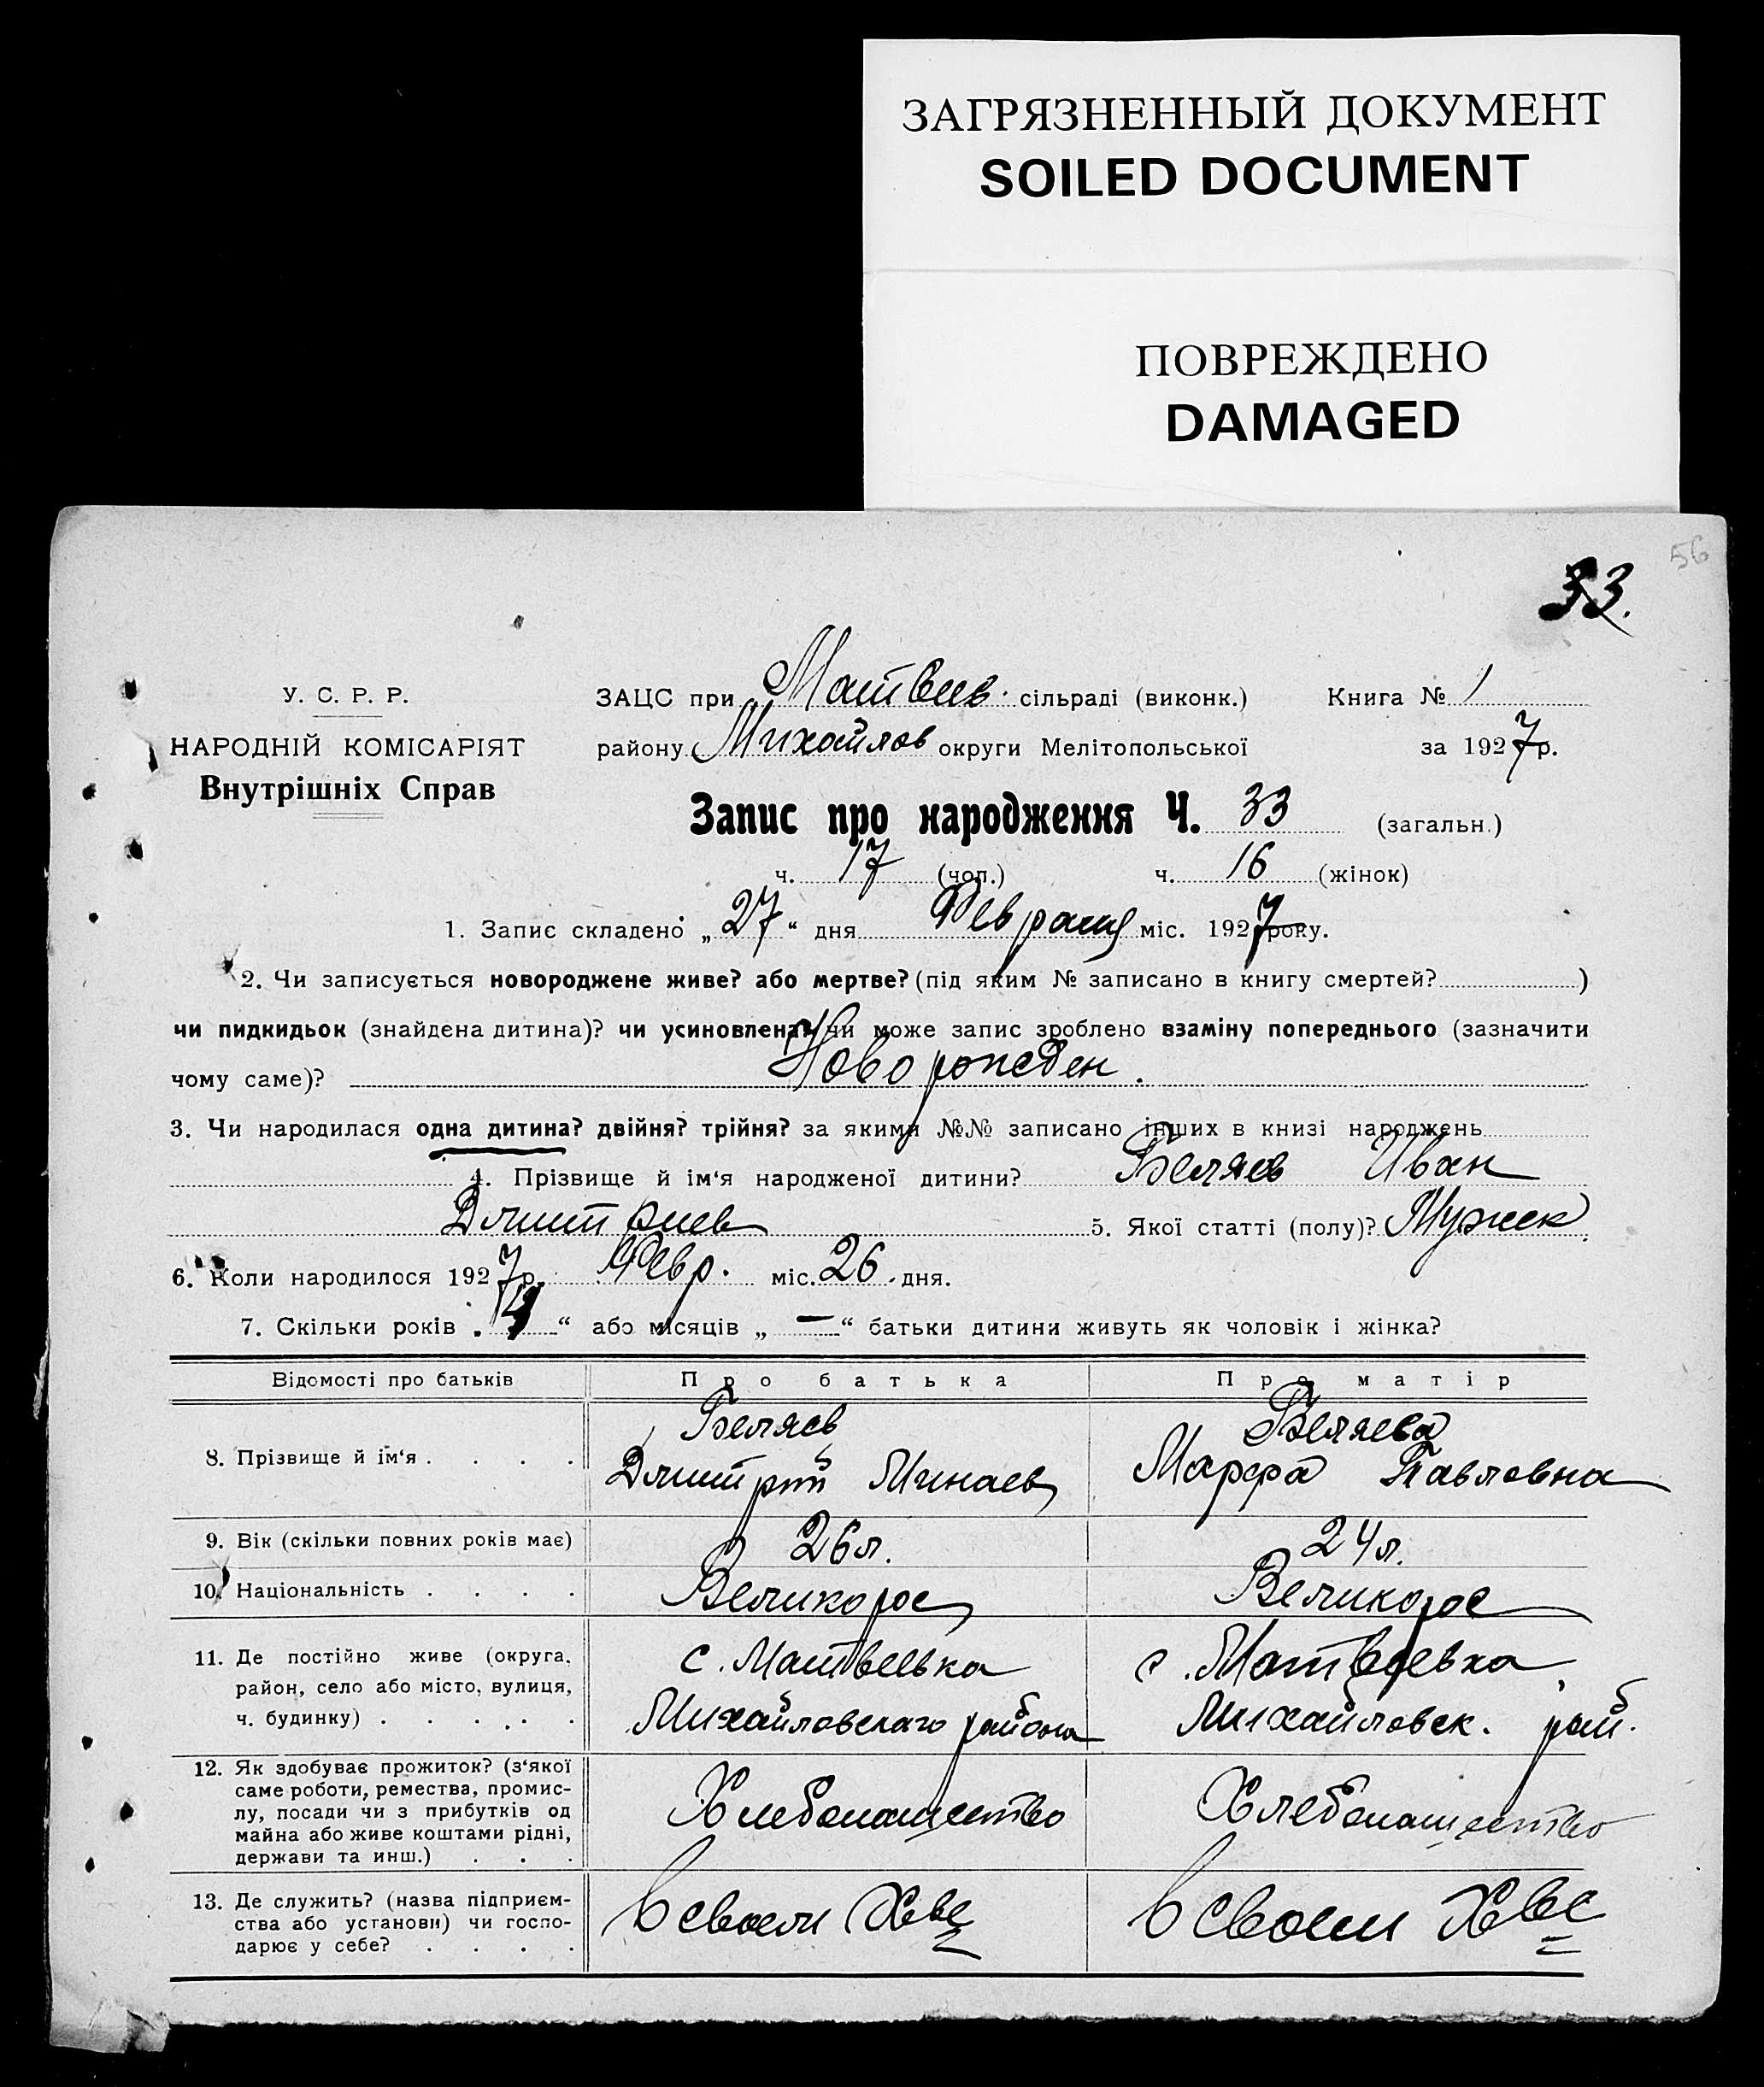 ЗАГРЯЗНЕННЫЙ ДОКУМЕНТ
SOILED DOCUMENT
ПОВРЕЖДЕНО
DAMAGED
56
33.
У. С. Р. Р.
НАРОДНІЙ КОМІСАРІЯТ
Внутрішніх Справ
ЗАЦС при Матвеев. сільраді (виконк.) Книга № 1
району Михайлов округи Мелітопольської за 1927 р.
Запис про народження Ч. 33 (загальн.)
ч. 17 (чол.) ч. 16 (жінок)
1. Запис складено „27“ дня Февраля міс. 1927 року.
2. Чи записується новороджене живе? або мертве? (під яким № записано в книгу смертей? )
чи пидкидьок (знайдена дитина)? чи усиновлена? чи може запис зроблено взаміну попереднього (зазначити
чому саме)? Новорожден.
3. Чи народилася одна дитина? двійня? трійня? за якими №№ записано інших в книзі народжень
4. Прізвище й ім‘я народженої дитини? Беляев Иван
Дмитриев 5. Якої статті (полу)? Мужск
6. Коли народилося 1927 р. Февр. міс. 26 дня.
7. Скільки років „4“ або місяців „—“ батьки дитини живуть як чоловік і жінка?
Відомості про батьків Про батька Про матір
8. Прізвище й ім‘я . . . .
Беляев
Дмитрий Минаев
Беляева
Марфа Павловна
9. Вік (скільки повних років має) 26 л. 24 л.
10. Національність . . . . Великорос Великорос
11. Де постійно живе (округа,
район, село або місто, вулиця,
ч. будинку) . . . . .
с. Матвеевка
Михайловскаго района
с. Матвеевка
Михайловск. рай.
12. Як здобуває прожиток? (з‘якої
саме роботи, ремества, промис-
лу, посади чи з прибутків од
майна або живе коштами рідні,
держави та инш.) . . .
Хлебопашество
Хлебопашество
13. Де служить? (назва підприєм-
ства або установи) чи госпо-
дарює у себе? . . . .
В своем Хве
В своем Хве